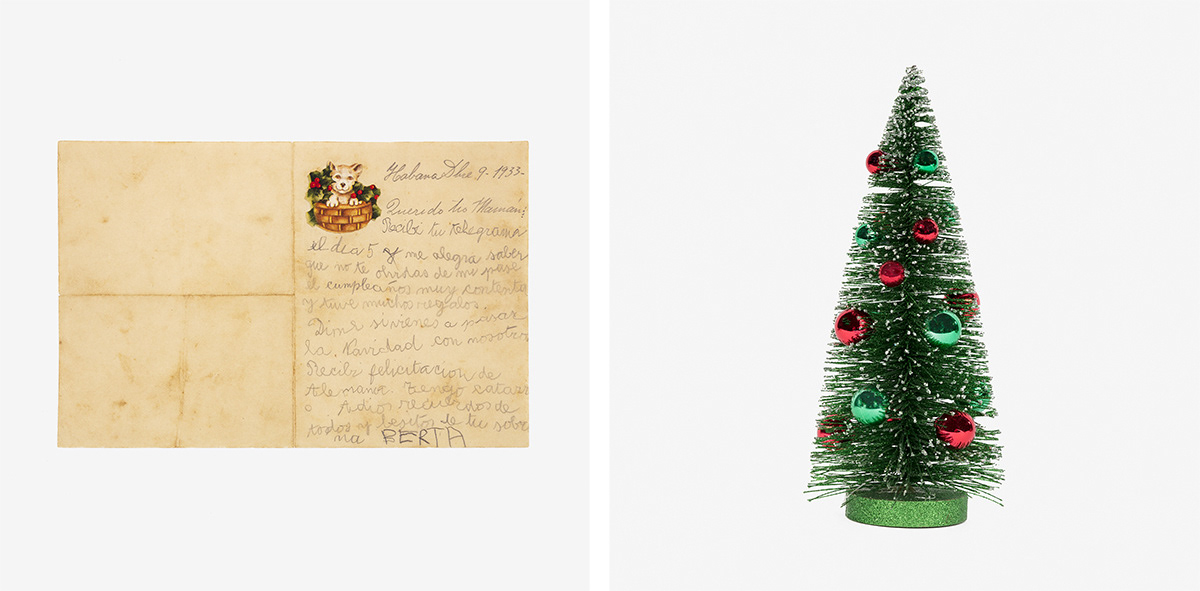 Habana Dbre 9-1933-
Querido tio Maman:
Recibi tu telegrama
el dia 5 y me alegra saber
que no te olvidas de mi pase
el cumpleaños muy contenta
y tuve muchos regalos.
Dime si vienes a pasar
la. Navidad con nosotros
Recibi felicitacion de
Alemania. Tengo catarr
o Adios recuerdos de
todos y besitos de tu sobri
na BERTA